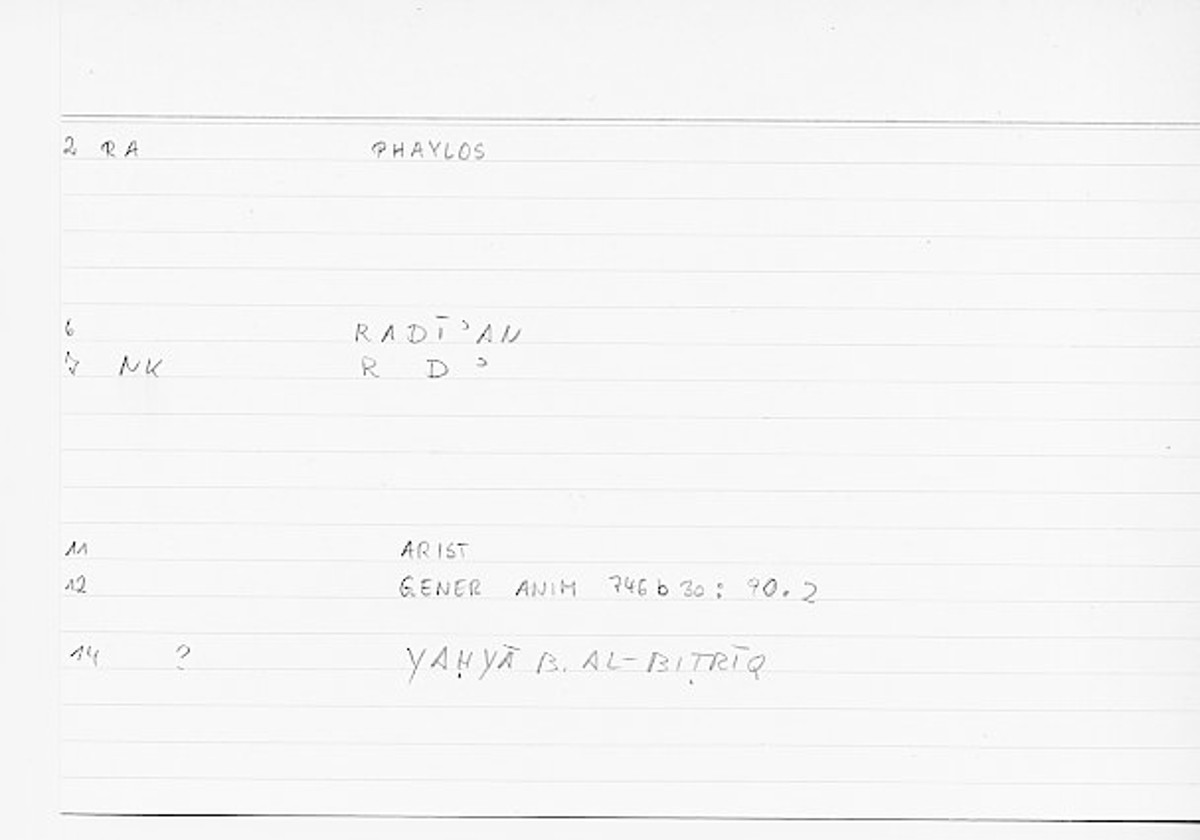 2 RA PHAYLOS
6 RADĪʾAN
7 NK R D ʾ
11 ARIST
12 GENER ANIM 746 b 30 : 90.2
14 ? YAḤYĀ B. AL-BIṬRĪQ